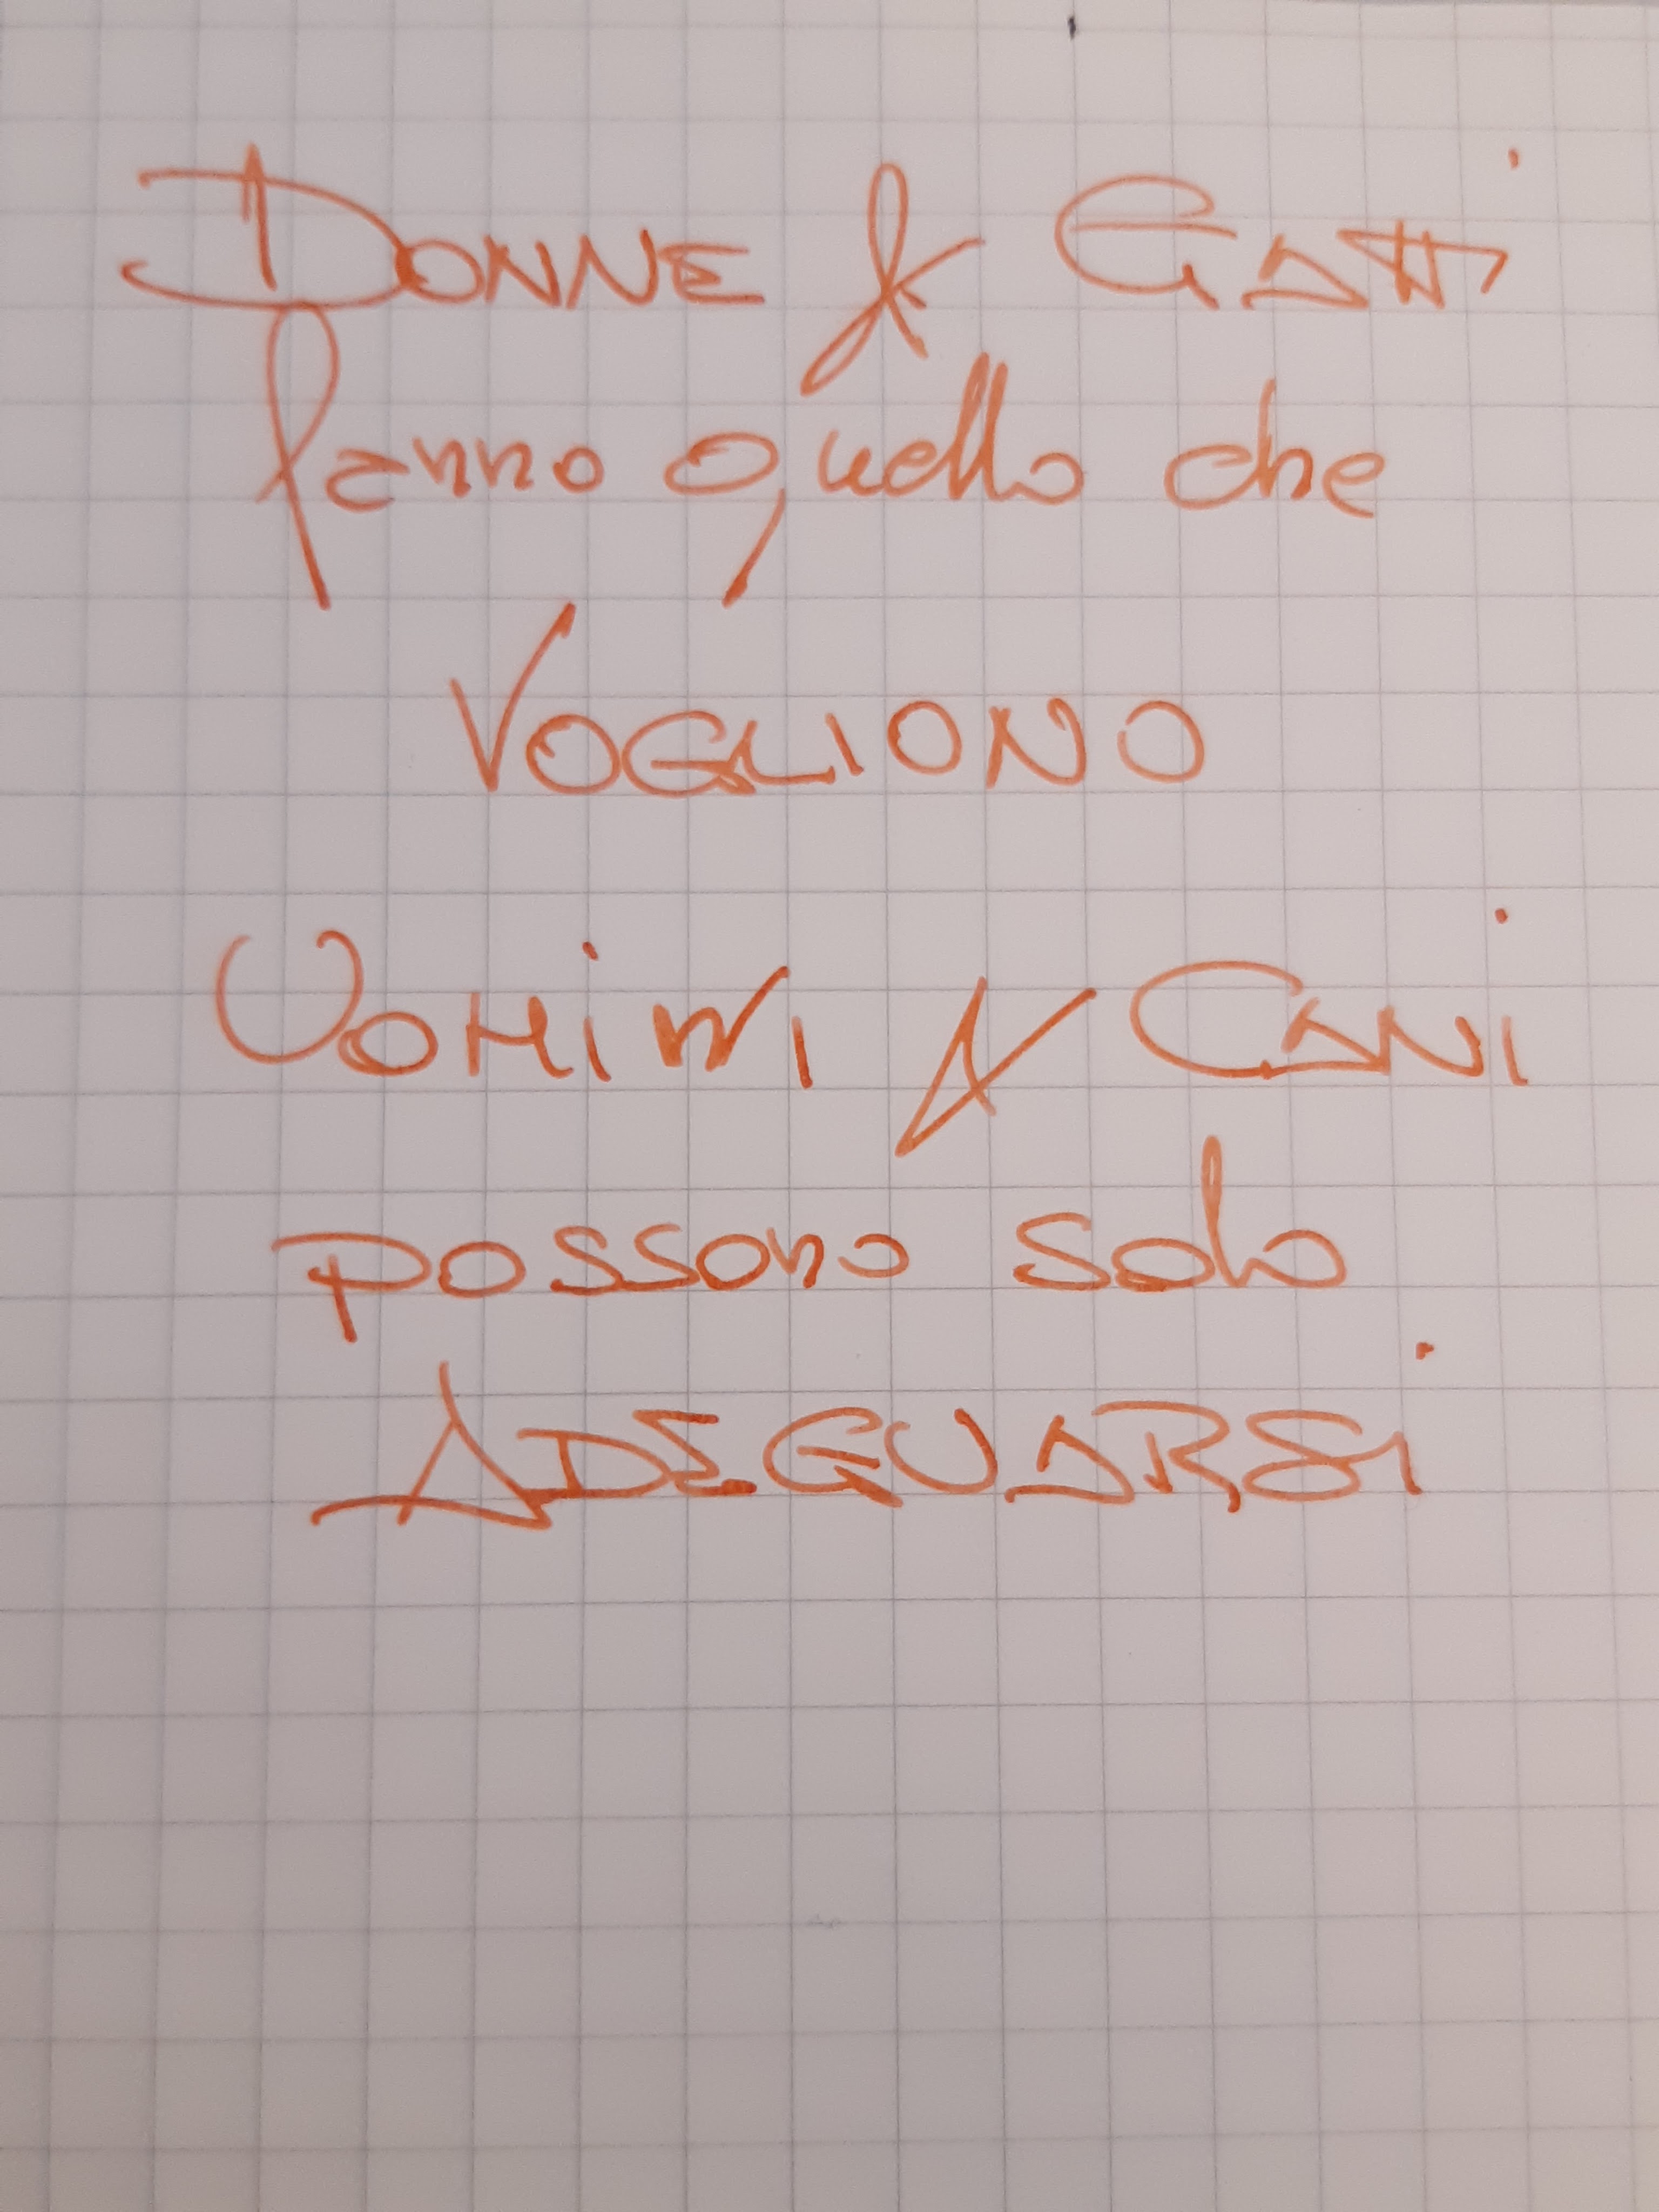 DONNE & GATTi
fanno quello che
VOGLIONO
UOMiNI & CANi
possono solo
ADEGUARSi